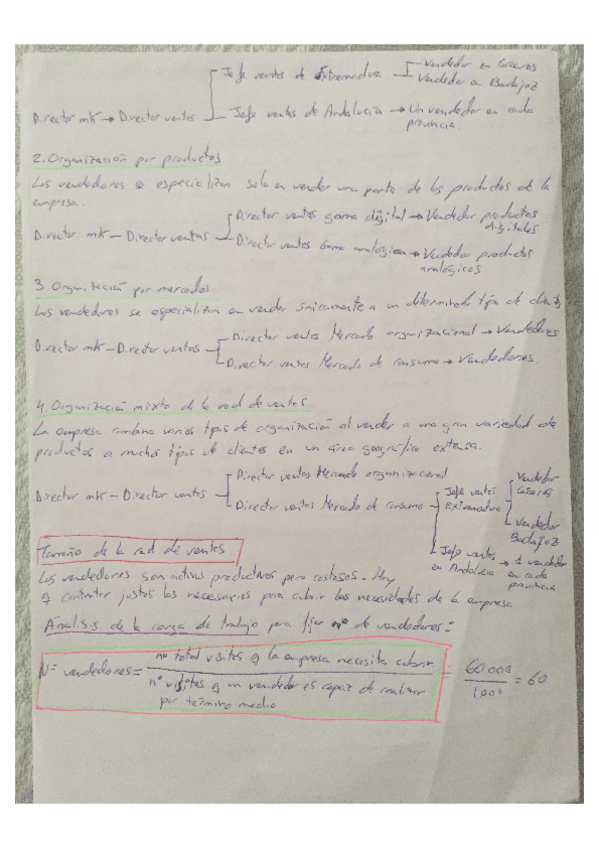 Jefe ventas de Extremadura
Vendedor en Cáceres
Vendedor en Badajoz
Director mk → Director ventas
Jefe ventas de Andalucía → Un vendedor en cada
provincia
2. Organización por productos
Los vendedores se especializan solo en vender una parte de los productos de la
empresa.
Director ventas gama digital → Vendedor productos
digitales
Director mk - Director ventas
Director ventas Gama analógica → Vendedor productos
analógicos
3. Organización por mercados
Los vendedores se especializan en vender únicamente a un determinado tipo de clientes
Director ventas Mercado organizacional → Vendedores
Director mk - Director ventas
Director ventas Mercado de consumo → Vendedores
4. Organización mixta de la red de ventas
La empresa combina varios tipos de organización al vender a una gran variedad de
productos a muchos tipos de clientes en un área geográfica extensa.
Director ventas Mercado organizacional
Director mk - Director ventas
Director ventas Mercado de consumo
Jefe ventas
Extremadura
Vendedor
Cáceres
Vendedor
Badajoz
Jefe ventas
en Andalucía
→ 1 vendedor
en cada
provincia
Tamaño de la red de ventas
Los vendedores son activos productivos pero costosos. Hay
q contratar justos los necesarios para cubrir las necesidades de la empresa
Análisis de la carga de trabajo para fijar nº de vendedores:
Nº vendedores = nº total visitas q la empresa necesita cubrir
nº visitas q un vendedor es capaz de realizar
por término medio
= 60000
1000
= 60